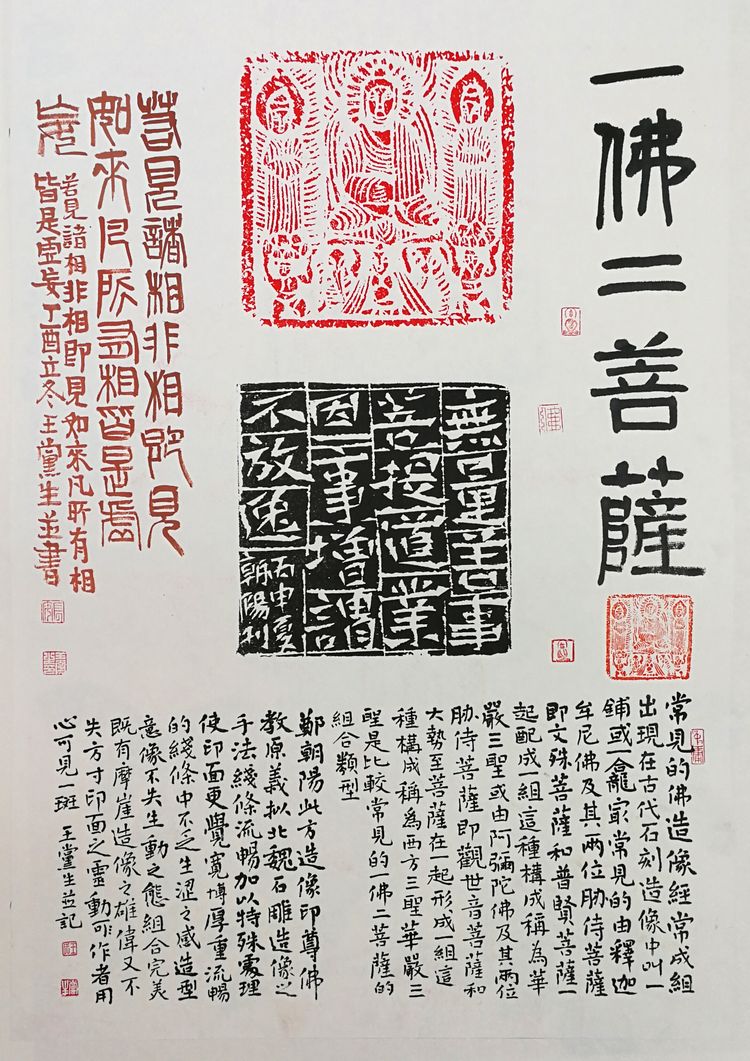 一佛二菩薩
無量善事
菩提道業
因一事增謂
不放逸
丙申夏
朝陽刊
若見諸相非相即見
如來凡所有相皆是虛
妄
若見諸相非相即見如來凡所有相
皆是虛妄丁酉立冬王黨生並書
常見的佛造像經常成組
出現在古代石刻造像中叫一
鋪或一龕最常見的由釋迦
牟尼佛及其兩位肋侍菩薩
即文殊菩薩和普賢菩薩一
起配成一組這種構成稱為華
嚴三聖或由阿彌陀佛及其兩位
肋侍菩薩即觀世音菩薩和
大勢至菩薩在一起形成一組這
種構成稱為西方三聖華嚴三
聖是比較常見的一佛二菩薩的
組合類型
鄭朝陽此方造像印尊佛
教原義拟北魏石雕造像之
手法綫條流暢加以特殊處理
使印面更覺寬博厚重流暢
的綫條中不乏生澀之感造型
意像不失生動之態組合完美
既有摩崖造像之雄偉又不
失方寸印面之靈動作者用
心可見一斑 王黨生並記